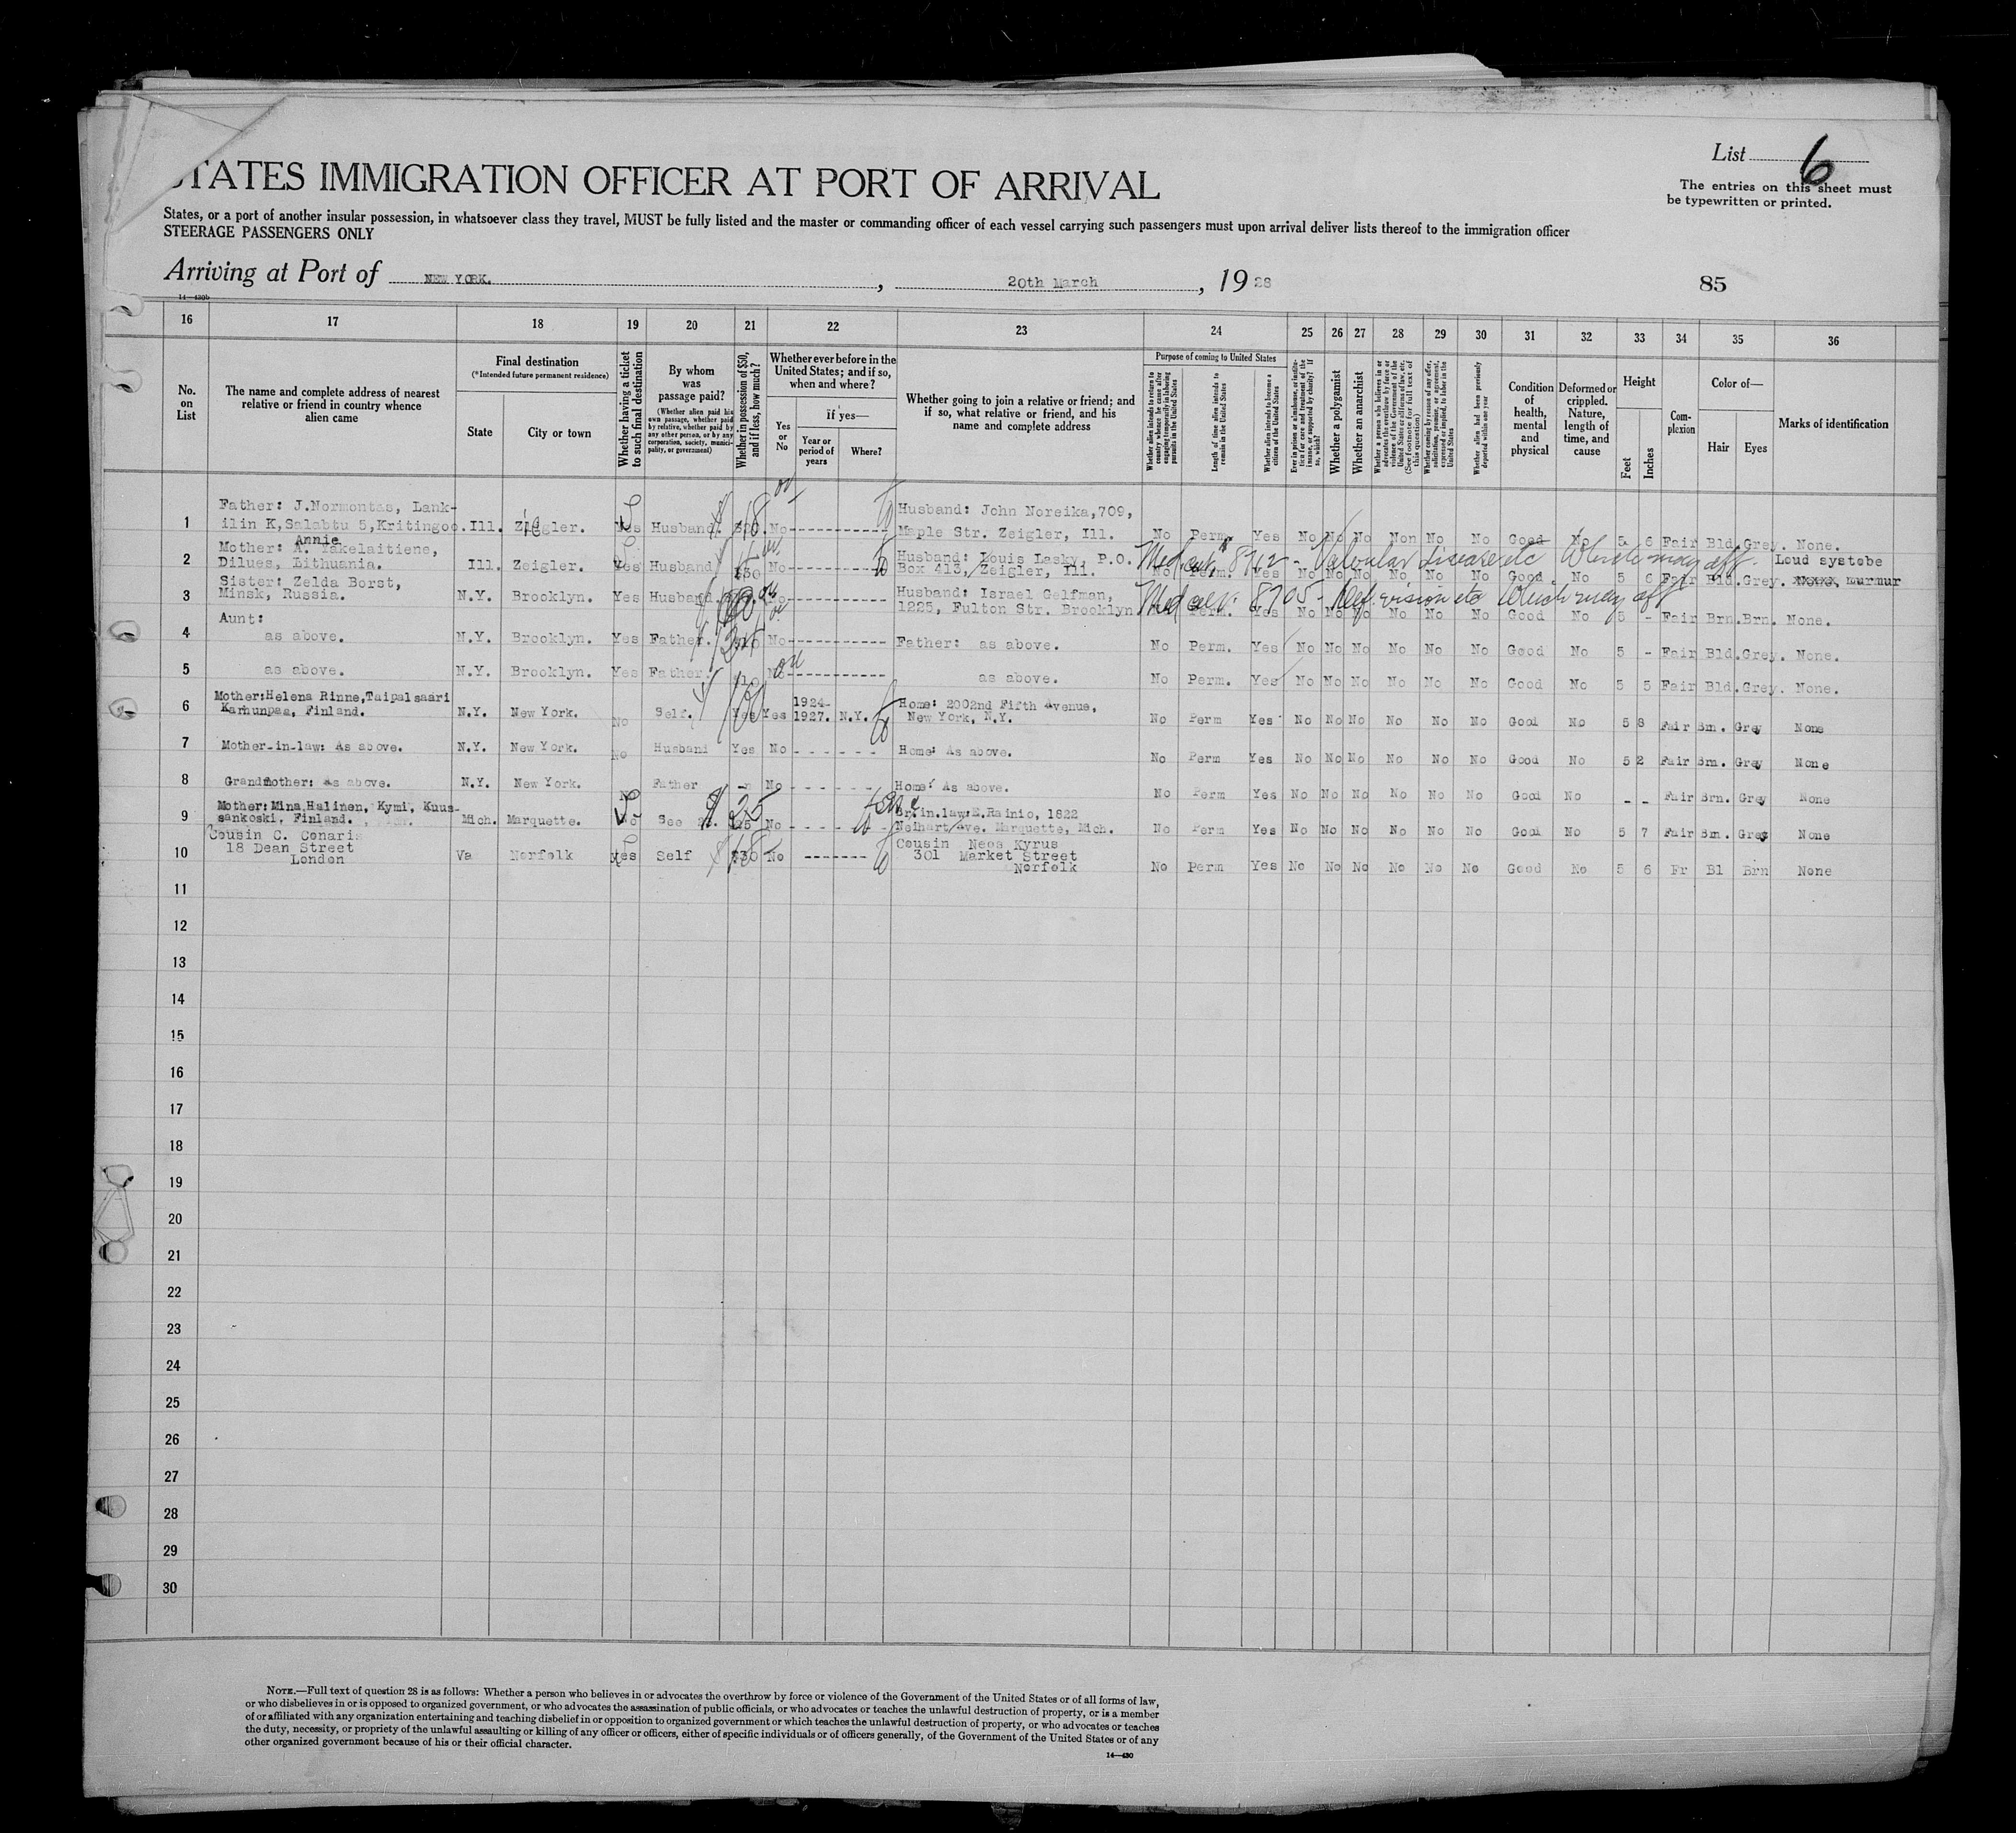 List 6
The entries on this sheet must
be typewritten or printed.
STATES IMMIGRATION OFFICER AT PORT OF ARRIVAL
States, or a port of another insular possession, in whatsoever class they travel, MUST be fully listed and the master or commanding officer of each vessel carrying such passengers must upon arrival deliver lists thereof to the immigration officer
STEERAGE PASSENGERS ONLY
Arriving at Port of NEW YORK. , 20th March , 1928
85
14—430b
16 17 18 19 20 21 22 23 24 25 26 27 28 29 30 31 32 33 34 35 36
No. on List
The name and complete address of nearest relative or friend in country whence alien came
Final destination
(*Intended future permanent residence)
State
City or town
Whether having a ticket to such final destination
By whom was passage paid?
(Whether alien paid his own passage, whether paid by relative, whether paid by any other person, or by any corporation, society, municipality, or government)
Whether in possession of $50, and if less, how much?
Whether ever before in the United States; and if so, when and where?
Yes or No
If yes—
Year or period of years
Where?
Whether going to join a relative or friend; and if so, what relative or friend, and his name and complete address
Purpose of coming to United States
Whether alien intends to return to country whence he came after engaging temporarily in laboring pursuits in the United States
Length of time alien intends to remain in the United States
Whether alien intends to become a citizen of the United States
Ever in prison or almshouse, or institution for care and treatment of the insane, or supported by charity? If so, which?
Whether a polygamist
Whether an anarchist
Whether a person who believes in or advocates the overthrow by force or violence of the Government of the United States or all forms of law, etc. (See footnote for full text of this question)
Whether coming by reason of any offer, solicitation, promise, or agreement, expressed or implied, to labor in the United States
Whether alien had been previously deported within one year
Condition of health, mental and physical
Deformed or crippled. Nature, length of time, and cause
Height
Feet
Inches
Complexion
Color of—
Hair
Eyes
Marks of identification
1 Father: J.Normontas, Lank-
ilin K,Salabtu 5,Kritingoo. Ill. Zeigler. Yes Husband. No Husband: John Noreika,709,
Maple Str. Zeigler, Ill. No Perm. Yes No No No Non No No Good No 5 6 Fair Bld. Grey. None.
Annie
2 Mother: A. Yakelaitiene,
Dilues, Lithuania. Ill. Zeigler. Yes Husband $50 No Husband: Louis Lasky, P.O.
Box 413, Zeigler, Ill. No Perm. Yes No No No No No No Good No 5 6 Fair Bld. Grey. Loud systobe
murmur
Med cert 8762 - Valvular disease etc which may aff.
3 Sister: Zelda Borst,
Minsk, Russia. N.Y. Brooklyn. Yes Husband. No Husband: Israel Gelfman,
1225, Fulton Str. Brooklyn Perm. Yes No No No No No No Good No 5 - Fair Brn. Brn. None.
Med cer. 8705 - Def. vision etc which may aff
4 Aunt:
as above. N.Y. Brooklyn. Yes Father. No Father: as above. No Perm. Yes No No No No No No Good No 5 - Fair Bld. Grey. None.
5 as above. N.Y. Brooklyn. Yes Father. No as above. No Perm. Yes No No No No No No Good No 5 5 Fair Bld. Grey. None.
6 Mother:Helena Rinne,Taipalsaari
Karhunpaa, Finland. N.Y. New York. No Self. Yes Yes 1924-
1927. N.Y. Home: 2002nd Fifth Avenue,
New York, N.Y. No Perm Yes No No No No No No Good No 5 8 Fair Bm. Grey None
7 Mother-in-law: As above. N.Y. New York. No Husband Yes No Home: As above. No Perm Yes No No No No No No Good No 5 2 Fair Bm. Grey None
8 Grandmother: as above. N.Y. New York. No Father - No Home: As above. No Perm Yes No No No No No No Good No - - Fair Brn. Grey None
9 Mother:Mina Halinen, Kymi, Kuus-
sankoski, Finland. Mich. Marquette. No See $25 No Br.in.law:E.Rainio, 1822
Neihart Ave. Marquette, Mich. No Perm Yes No No No No No No Good No 5 7 Fair Bm. Grey None
10 Cousin C. Conaris
18 Dean Street
London Va Norfolk Yes Self $30 No Cousin Neos Kyrus
301 Market Street
Norfolk No Perm Yes No No No No No No Good No 5 6 Fr Bl Brn None
11
12
13
14
15
16
17
18
19
20
21
22
23
24
25
26
27
28
29
30
NOTE.—Full text of question 28 is as follows: Whether a person who believes in or advocates the overthrow by force or violence of the Government of the United States or of all forms of law,
or who disbelieves in or is opposed to organized government, or who advocates the assassination of public officials, or who advocates or teaches the unlawful destruction of property, or is a member
of or affiliated with any organization entertaining and teaching disbelief in or opposition to organized government or which teaches the unlawful destruction of property, or who advocates or teaches
the duty, necessity, or propriety of the unlawful assaulting or killing of any officer or officers, either of specific individuals or of officers generally, of the Government of the United States or of any
other organized government because of his or their official character.
14—430